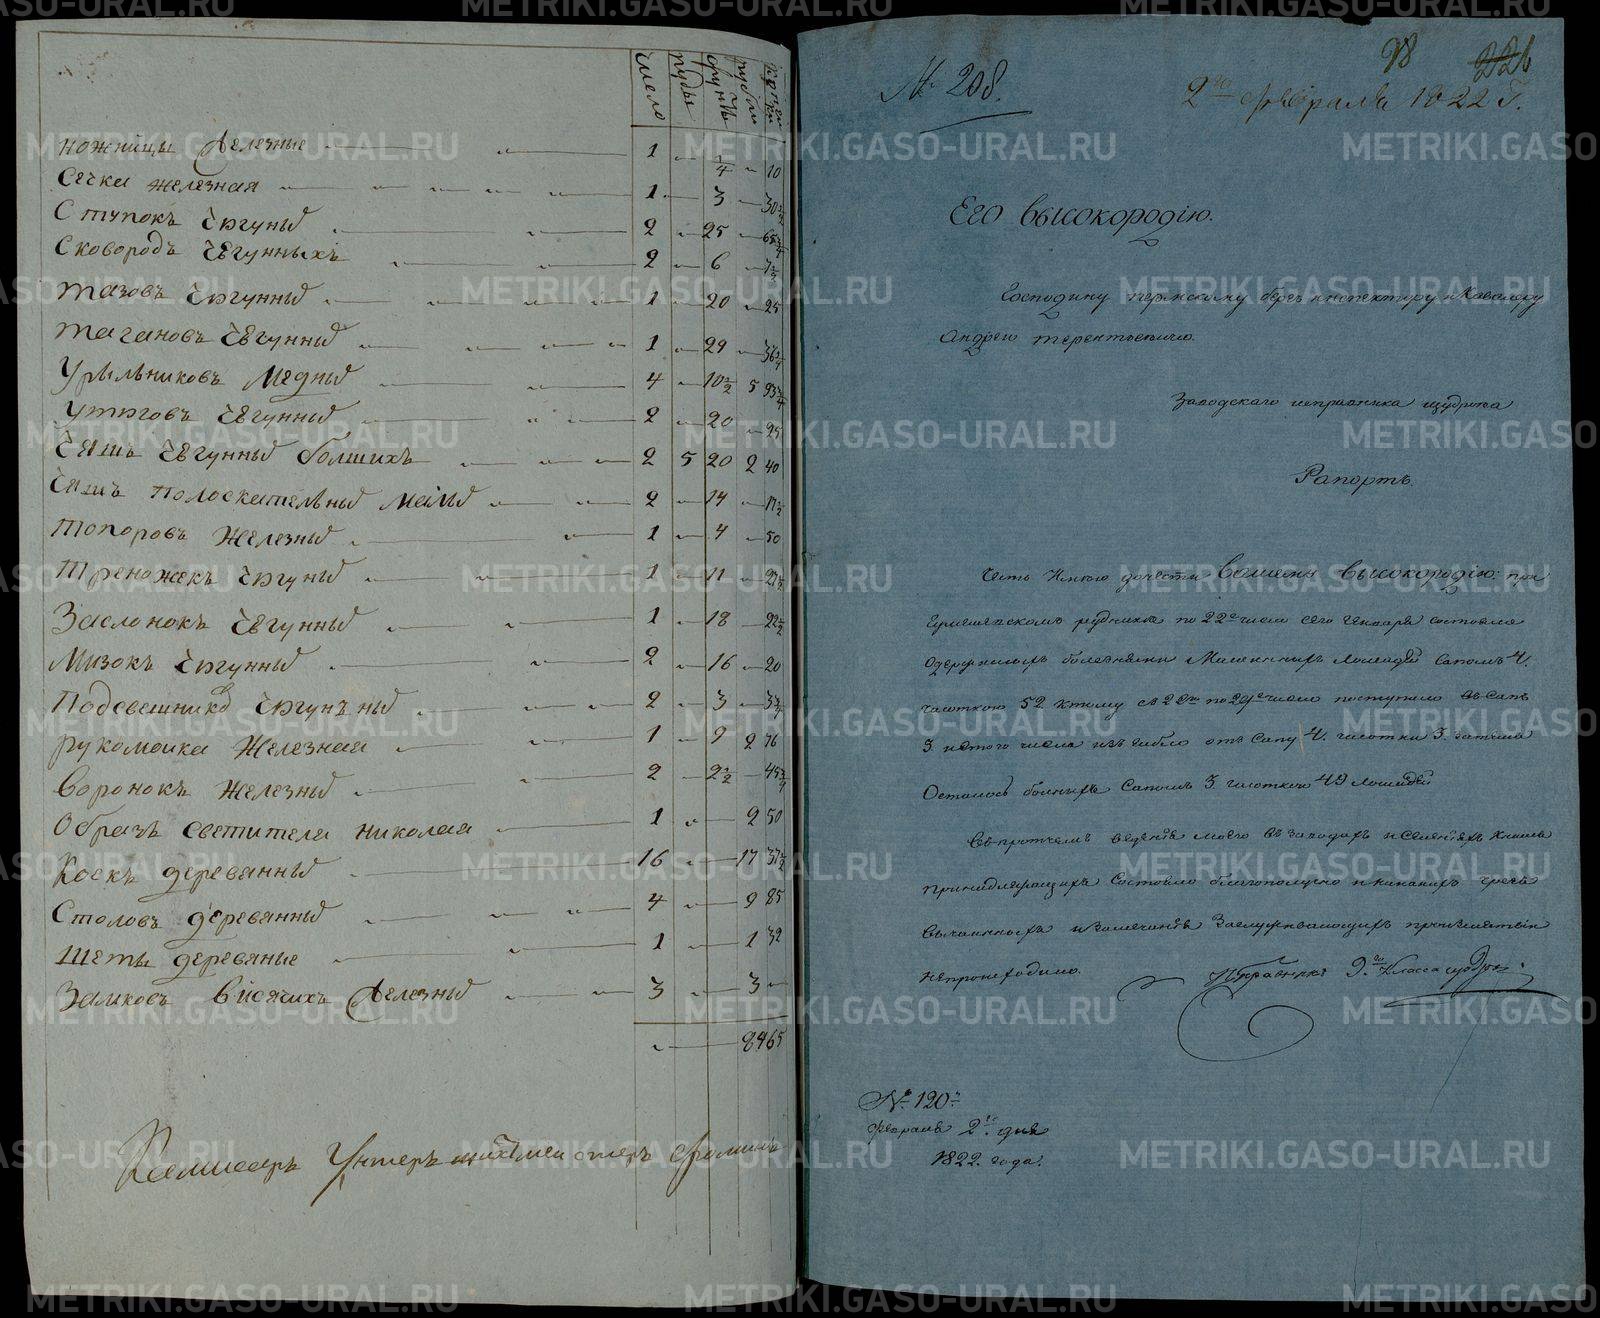 число пуды фунты рубли копейки
ножницы железные 1 1/4 10
Сечка железная 1 3 30
Ступокъ чюгуны 2 25 65
Сковородъ чегунныхъ 2 6 7
тазовъ чюгунны 1 20 25
тагановъ чегунны 1 29 36
Урыльниковъ медны 4 10 1/2 5 93
утюговъ чегунны 2 20 25
Чашъ чегунны болшихъ 2 5 20 2 40
Чашъ полоскательны малы 2 14 17 1/2
топоровъ железны 1 4 50
треножекъ чюгуны 1 11
Заслонокъ чегунны 1 18 22 1/2
Мизокъ чюгунны 2 16 20
Подсвешнико чюгунъны 2 3 3 3/4
рукомоика железная 1 9 2 76
воронокъ железны 2 2 1/2 45
Образъ светителя николая 1 2 50
Коекъ деревянны 16 17 37 1/2
Столовъ деревянны 4 9 85
Шеты деревяные 1 1 32
Замковъ висячихъ железны 3 3
65
Камисаръ Унтеръ шихтмеистеръ Фоминъ
№ 208.
98
2го февраля 1822 г.
Его высокородію.
Господину пермскому бергъ инспектору и Кавалеру
Андрею терентьевичю
Заводскаго исправника щудрова
Рапортъ.
Честь имею донести Вашему высокородію: при
руднике по 22е число сего генваря состояло
одержимыхъ болезнями лошадей Сапомъ 4.
чесоткою 52 ктому съ 22го по 29е число поступило въ сапе
3. истого числа отъ сапу 4. чесотки 3. затемъ
Осталось больныхъ Сапомъ 3 чесоткою 49 лошадей
Впротчемъ ведения моего въ заводахъ и селенияхъ книмъ
принадлежащихъ состояло благополучно и никакихъ чрезъ
вычайныхъ изамечания заслуживающихъ произшествіи
непроисходило. Исправникъ 9го класса щудровъ
№ 120.
февраля 2го дня
1822. года.
METRIKI.GASO-URAL.RU